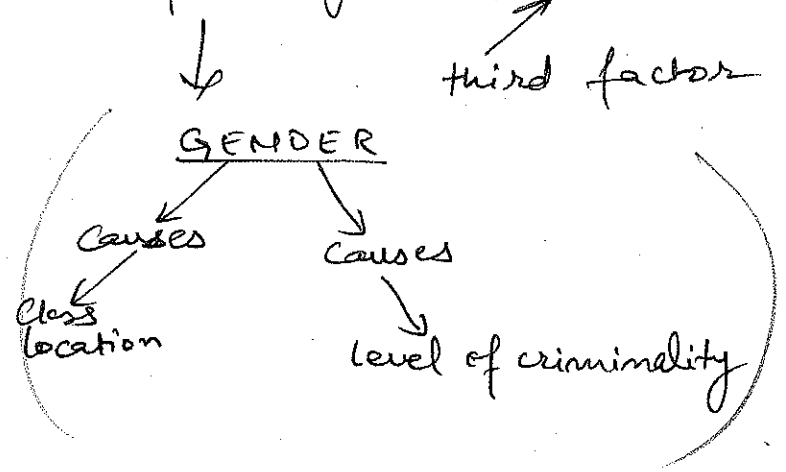 third factor
GENDER
Causes
causes
Class
location
level of criminality